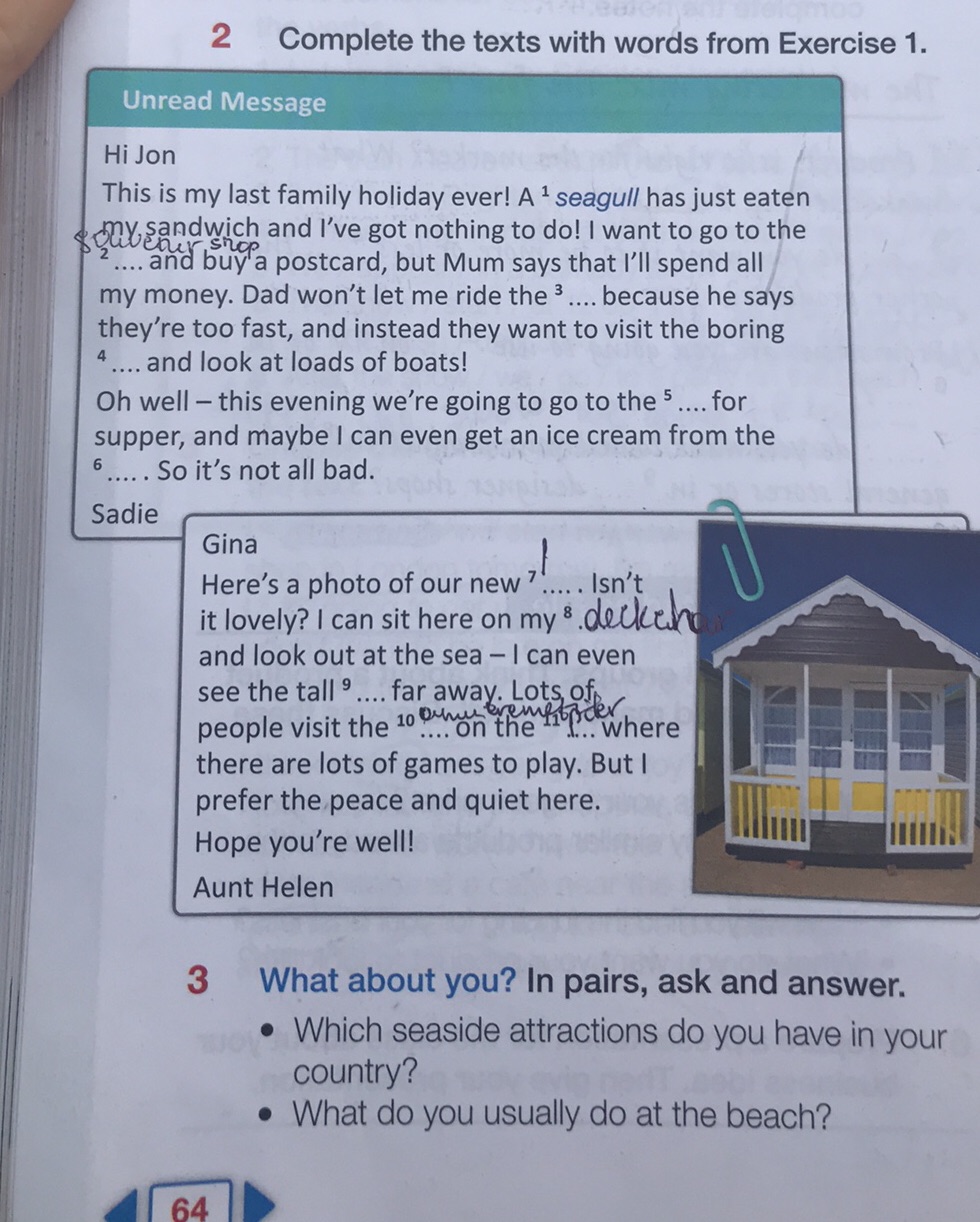 2 Complete the texts with words from Exercise 1.
Unread Message
Hi Jon
This is my last family holiday ever! A ¹ seagull has just eaten
my sandwich and I've got nothing to do! I want to go to the
shop
² .... and buy a postcard, but Mum says that I'll spend all
my money. Dad won't let me ride the ³ .... because he says
they're too fast, and instead they want to visit the boring
⁴ .... and look at loads of boats!
Oh well – this evening we're going to go to the ⁵ .... for
supper, and maybe I can even get an ice cream from the
⁶ .... . So it's not all bad.
Sadie
Gina
Here's a photo of our new ⁷ .... . Isn't
it lovely? I can sit here on my ⁸ .deckcha
and look out at the sea – I can even
see the tall ⁹ .... far away. Lots of
people visit the ¹⁰ .... on the ¹¹ .... where
there are lots of games to play. But I
prefer the peace and quiet here.
Hope you're well!
Aunt Helen
3 What about you? In pairs, ask and answer.
• Which seaside attractions do you have in your
country?
• What do you usually do at the beach?
64